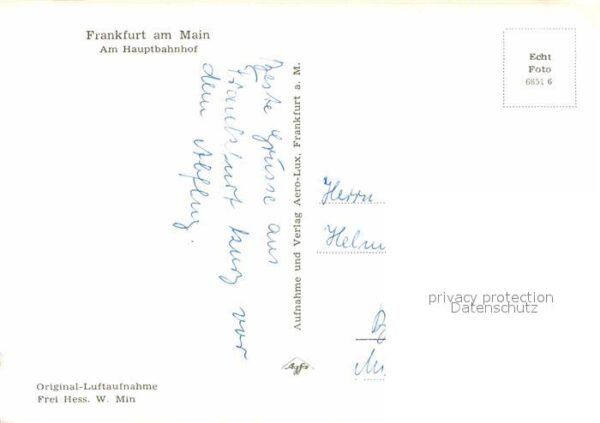 Frankfurt am Main
Am Hauptbahnhof
Echt
Foto
6851 6
Beste Grüsse aus
Frankfurt kurz vor
dem Abflug.
Aufnahme und Verlag Aero-Lux, Frankfurt a. M.
Herrn
Helm
privacy protection
Datenschutz
Agfa
Original-Luftaufnahme
Frei Hess. W. Min